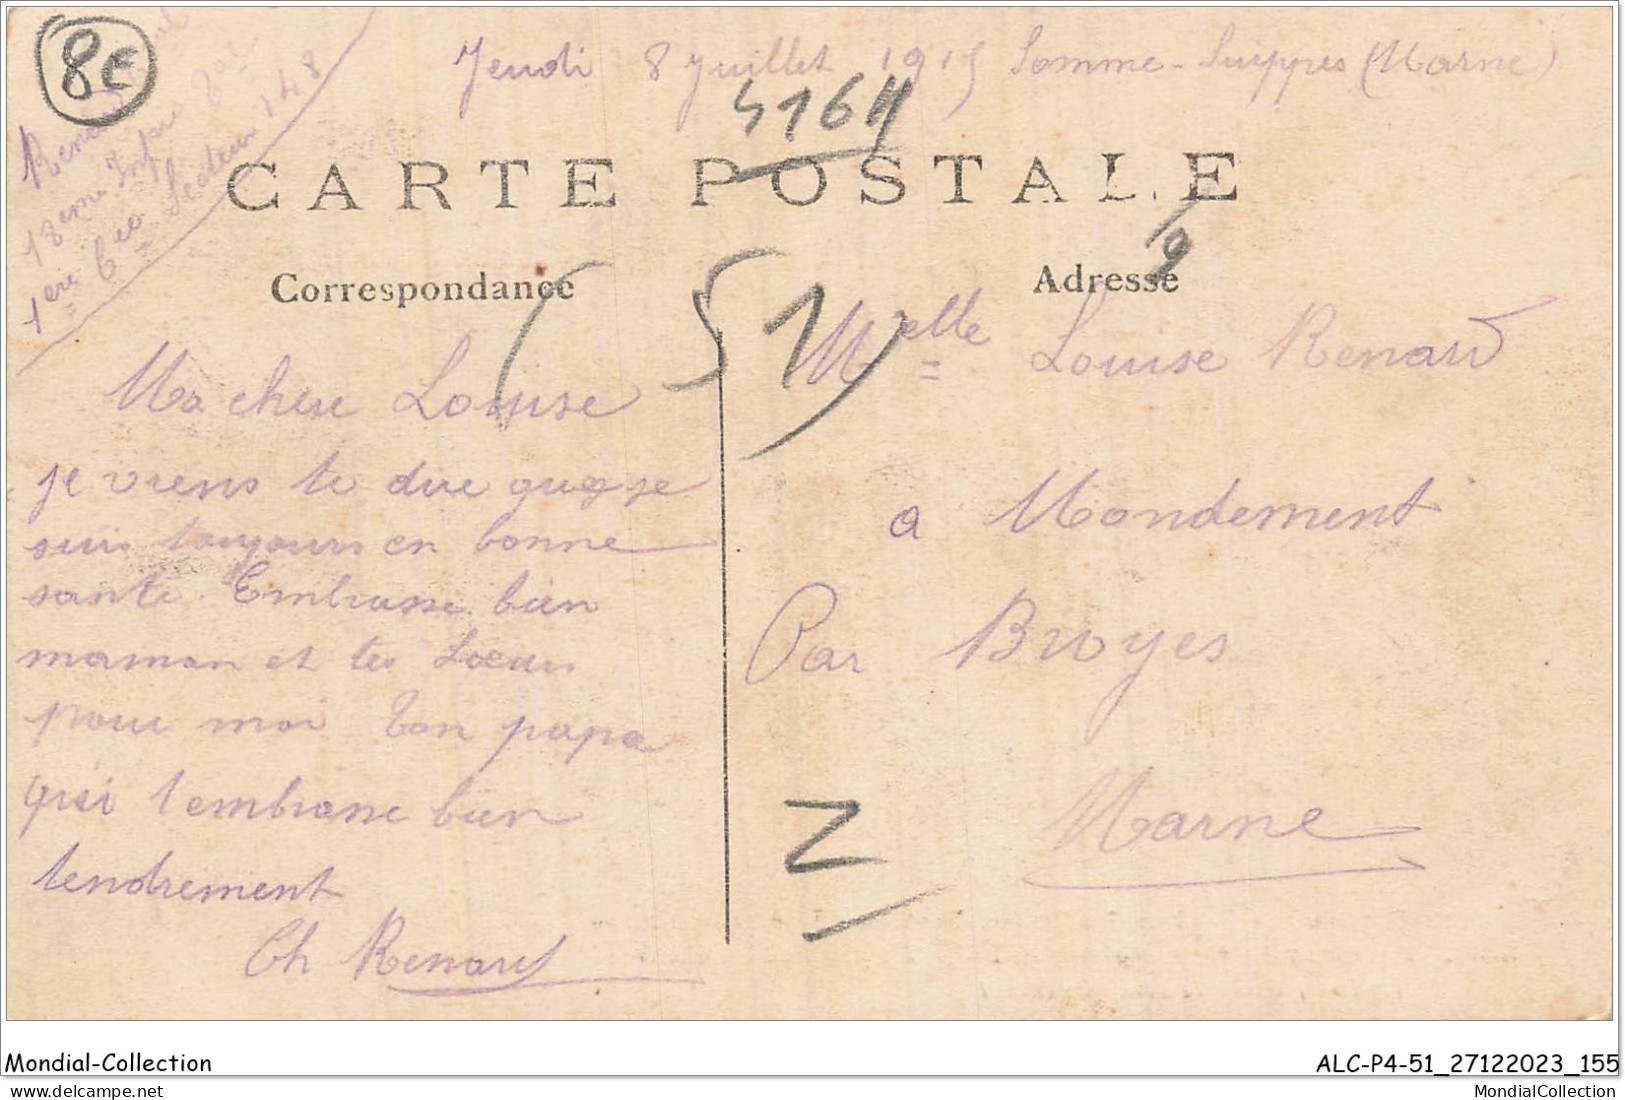 8€
Jeudi 8 Juillet 1915 Somme-Suippes (Marne)
5164
Renard
18eme Infrie Tal
1ere Cie Secteur 148
CARTE POSTALE
Correspondance
Adresse
(51)
Melle Louise Renard
a Mondement
Par Broyes
Marne
Ma chere Louise
je viens te dire que je
suis toujours en bonne
santé. Embrasse bien
maman et tes Sœurs
pour moi Ton papa
qui t'embrasse bien
tendrement
Ch Renard
Mondial-Collection
ALC-P4-51_27122023_155
www.delcampe.net
MondialCollection